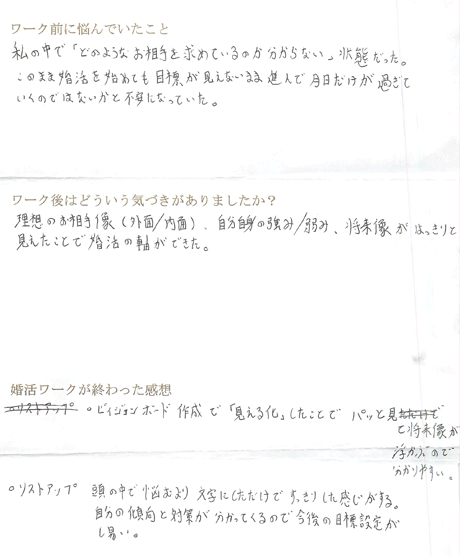 ワーク前に悩んでいたこと
私の中で「どのようなお相手を求めているのか分からない」状態だった。
このまま婚活を始めても目標が見えないまま進んで月日だけが過ぎて
いくのではないかと不安になっていた。
ワーク後はどういう気づきがありましたか？
理想のお相手像（外面/内面）、自分自身の強み/弱み、将来像がはっきりと
見えたことで婚活の軸ができた。
婚活ワークが終わった感想
○リストアップ ○ビィジョンボード作成で「見える化」したことでパッと見ただけで
で将来像が
浮かぶので
分かりやすい。
○リストアップ 頭の中で悩むより文字にしただけですっきりした感じがする。
自分の傾向と対策が分かってくるので今後の目標設定が
し易い。